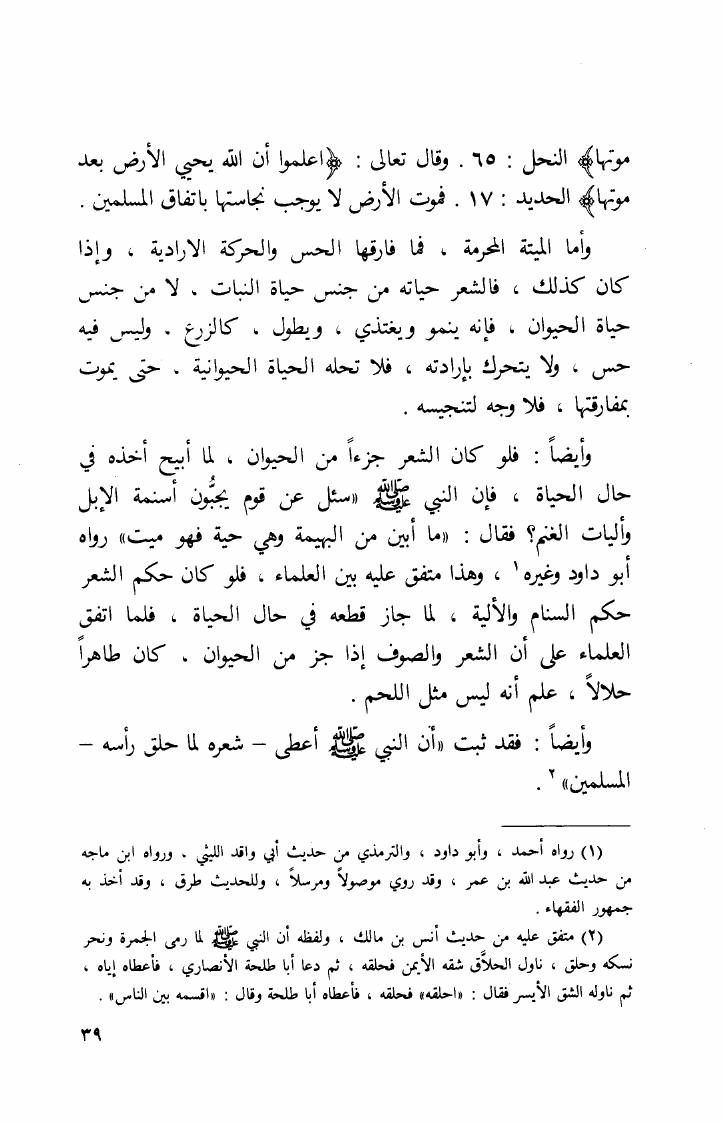 موتها﴾ النحل : ٦٥ . وقال تعالى : ﴿اعلموا أن الله يحيي الأرض بعد
موتها﴾ الحديد : ١٧ . فموت الأرض لا يوجب نجاستها باتفاق المسلمين .
وأما الميتة المحرمة ، فما فارقها الحس والحركة الارادية ، وإذا
كان كذلك ، فالشعر حياته من جنس حياة النبات ، لا من جنس
حياة الحيوان ، فإنه ينمو ويغتذي ، ويطول ، كالزرع . وليس فيه
حس ، ولا يتحرك بإرادته ، فلا تحله الحياة الحيوانية . حتى يموت
بمفارقتها ، فلا وجه لتنجيسه .
وأيضاً : فلو كان الشعر جزءاً من الحيوان ، لما أبيح أخذه في
حال الحياة ، فإن النبي ﷺ «سئل عن قوم يجبُّون أسنمة الإبل
وأليات الغنم؟ فقال : «ما أبين من البهيمة وهي حية فهو ميت» رواه
أبو داود وغيره١ ، وهذا متفق عليه بين العلماء ، فلو كان حكم الشعر
حكم السنام والألية ، لما جاز قطعه في حال الحياة ، فلما اتفق
العلماء على أن الشعر والصوف إذا جز من الحيوان ، كان طاهراً
حلالاً ، علم أنه ليس مثل اللحم .
وأيضاً : فقد ثبت «أن النبي ﷺ أعطى – شعره لما حلق رأسه –
المسلمين»٢ .
(١) رواه أحمد ، وأبو داود ، والترمذي من حديث أبي واقد الليثي ، ورواه ابن ماجه
من حديث عبد الله بن عمر ، وقد روي موصولاً ومرسلاً ، وللحديث طرق ، وقد أخذ به
جمهور الفقهاء .
(٢) متفق عليه من حديث أنس بن مالك ، ولفظه أن النبي ﷺ لما رمى الجمرة ونحر
نسكه وحلق ، ناول الحلاَّق شقه الأيمن فحلقه ، ثم دعا أبا طلحة الأنصاري ، فأعطاه إياه ،
ثم ناوله الشق الأيسر فقال : «احلقه» فحلقه ، فأعطاه أبا طلحة وقال : «اقسمه بين الناس» .
٣٩